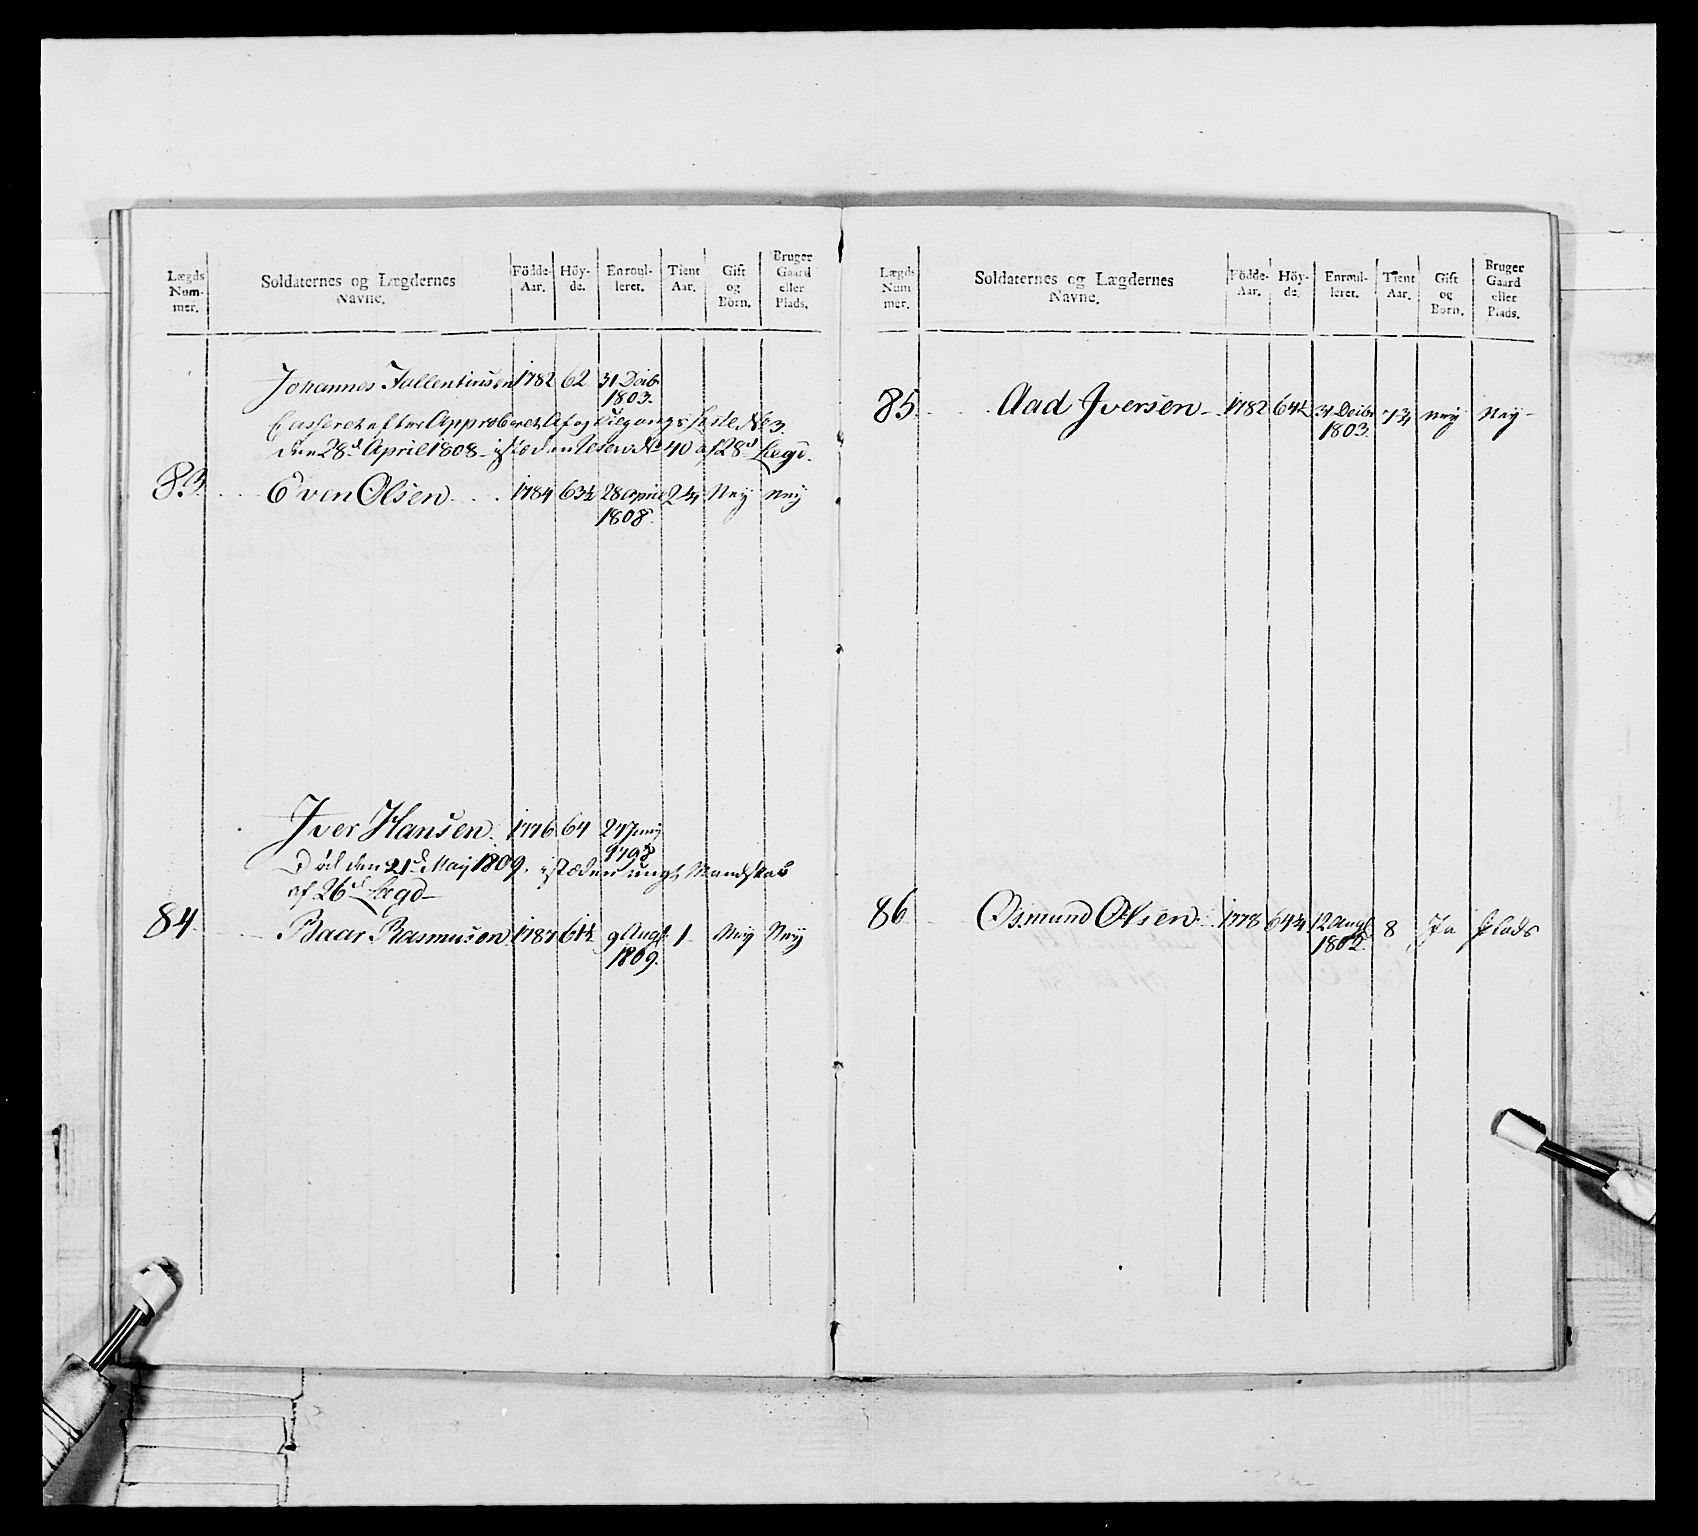 Lægds Nummer. Soldaternes og Lægdernes Navne. Födde-Aar. Höyde. Enroulleret. Tient Aar. Gift og Börn. Bruger Gaard eller Plads.
Johannes Fallentinsen 1782 62 31 Decbr
1803.
Casseret efter Approberet Af og Tilgangs Liste No 3
den 28d April 1808 istæden No 40 af 28d Lægd.
83. Even Olsen 1784 63½ 28 April 2¼ Neÿ Neÿ
1808.
Iver Hansen. 1776 64 27 Junÿ
1798
Död den 21d Maÿ 1809. istæden ungt Mandskab
af 26d Lægd
84. Baar Rasmuson 1787 61½ 9 Augt. 1 Neÿ Neÿ
1809.
Lægds Nummer. Soldaternes og Lægdernes Navne. Födde-Aar. Höyde. Enroulleret. Tient Aar. Gift og Börn. Bruger Gaard eller Plads.
85. Aad Iversen 1782 64½ 31 Decbr 7¼ Neÿ Neÿ
1803.
86 Osmund Olsen 1778 64¼ 12 Augt 8 Ja Plads
1802.